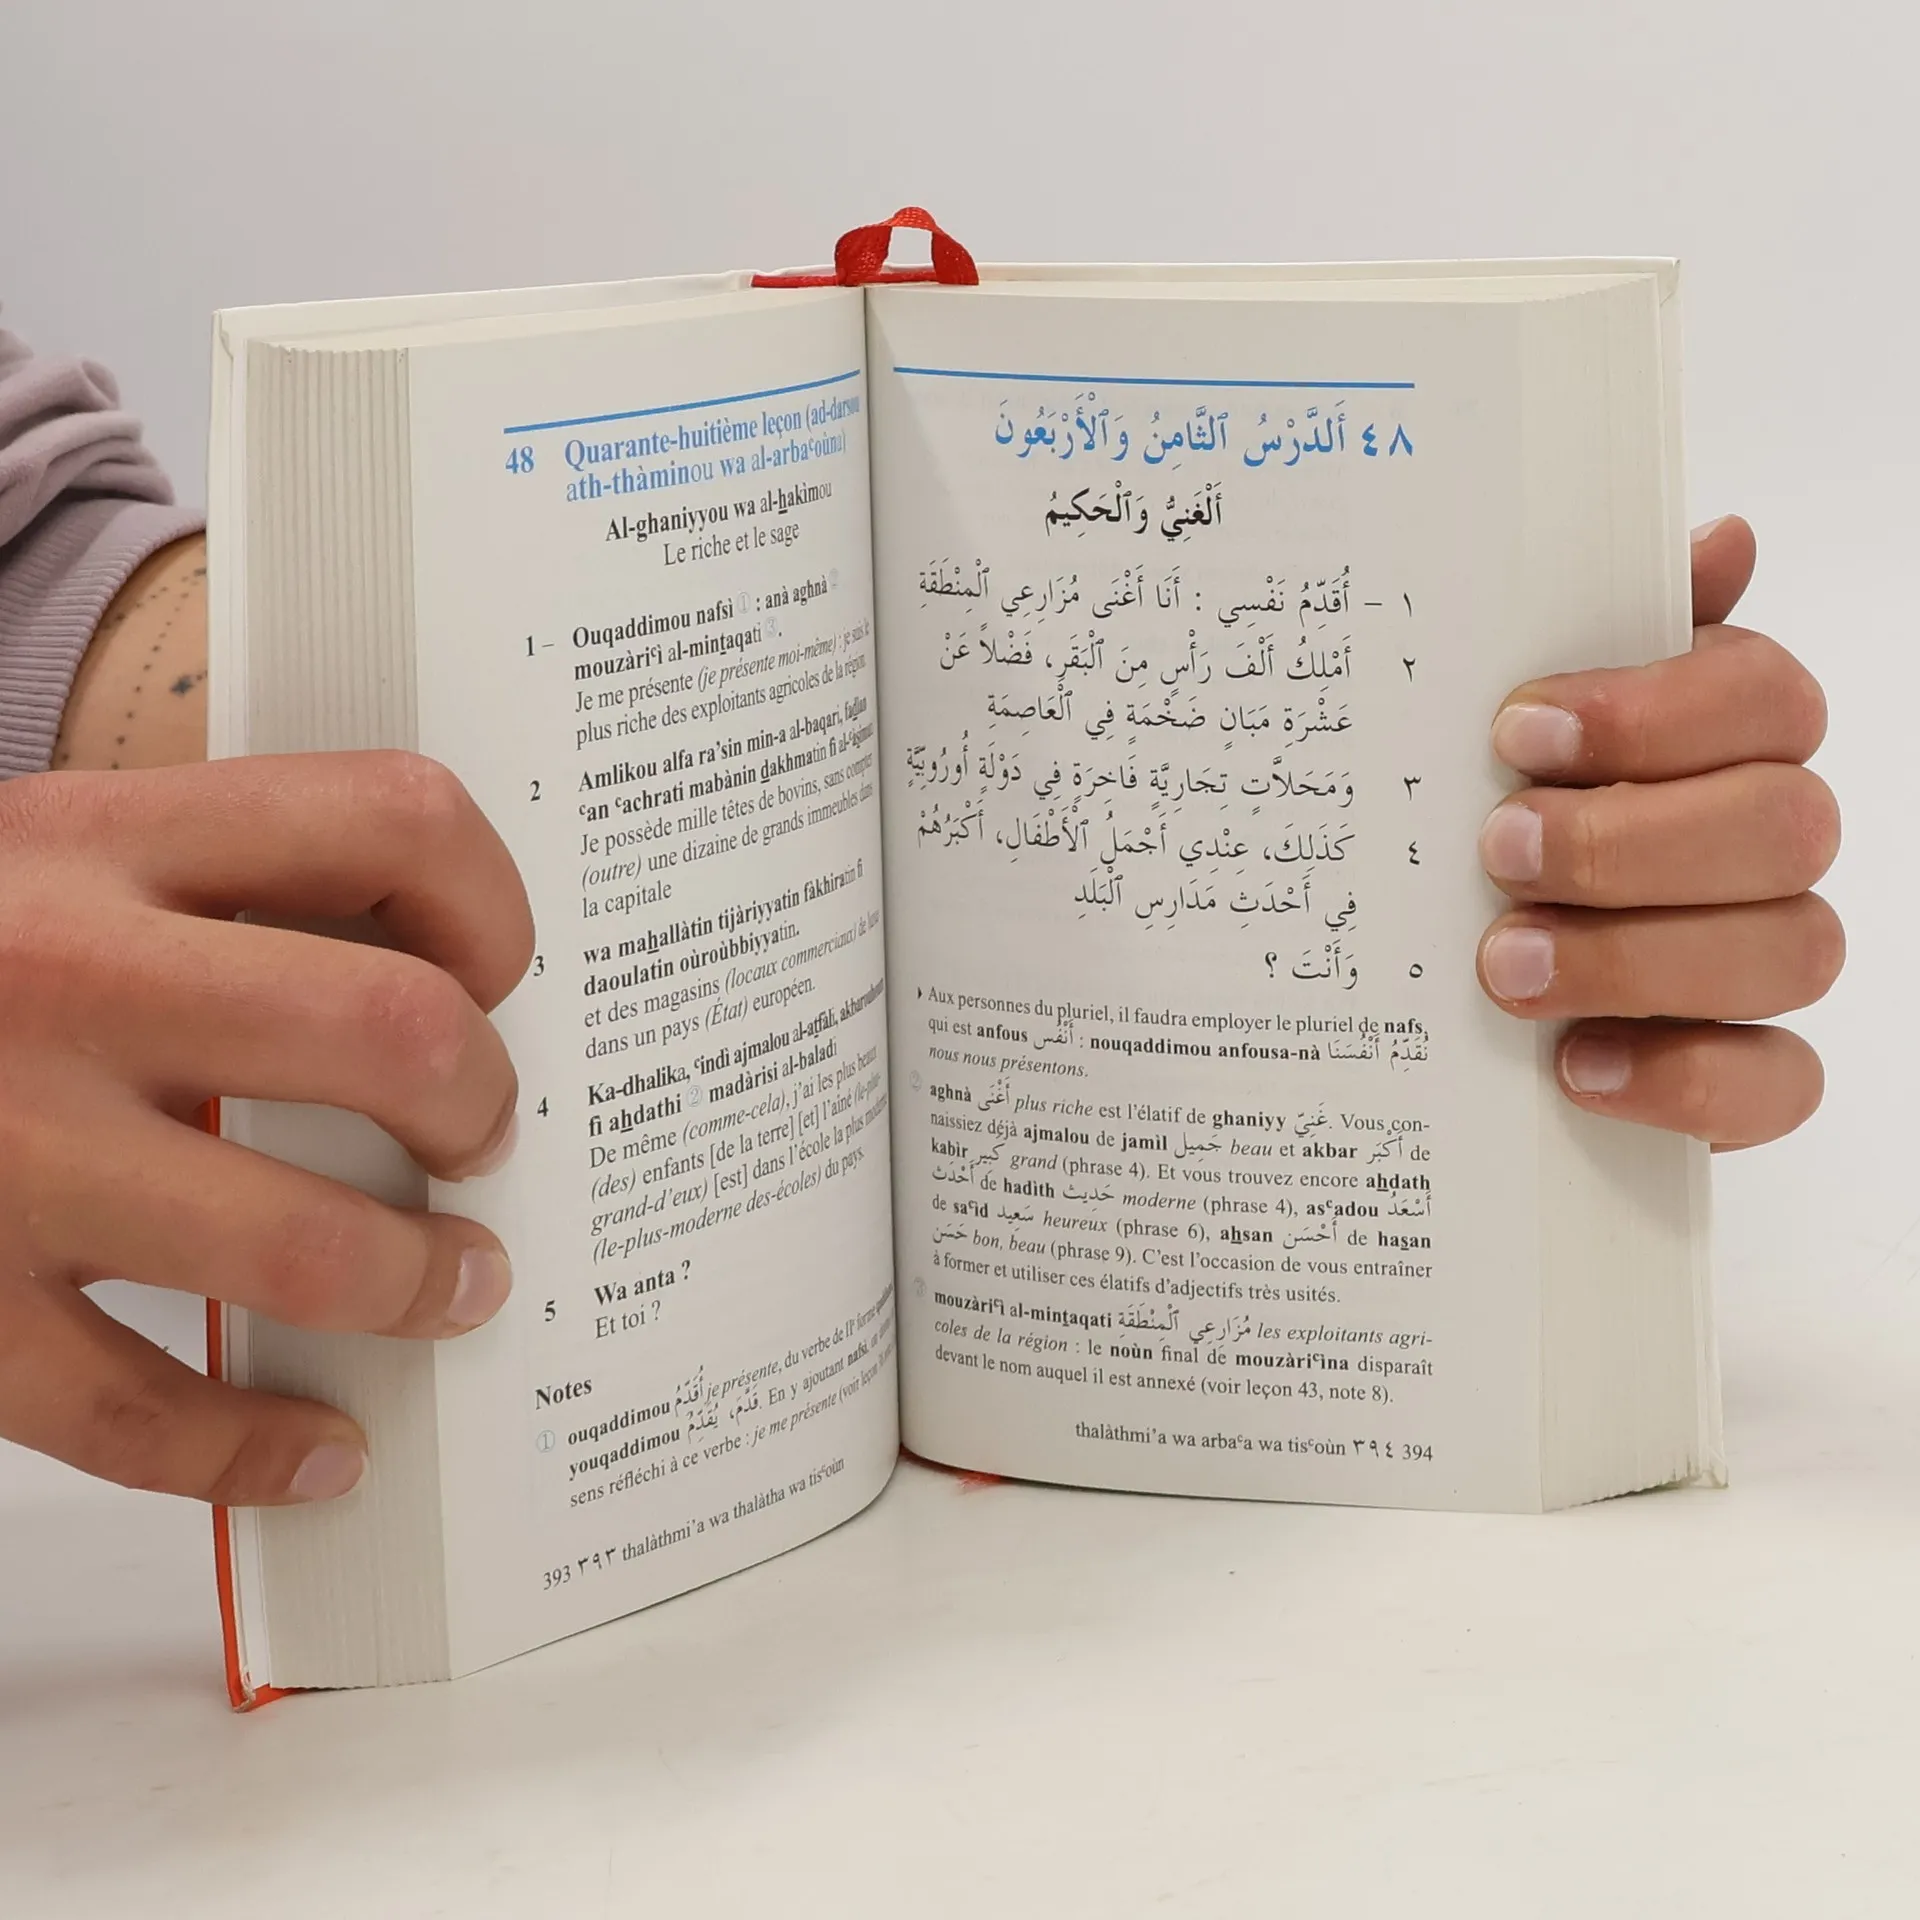 48 Quarante-huitième leçon (ad-darsou
ath-thàminou wa al-arbaᶜoùna)
Al-ghaniyyou wa al-hakìmou
Le riche et le sage
1 – Ouqaddimou nafsì ① : anà aghnà ②
mouzàriᶜì al-mintaqati ③.
Je me présente (je présente moi-même) : je suis le
plus riche des exploitants agricoles de la région.
2 Amlikou alfa ra’sin min-a al-baqari, fadlan
ᶜan ᶜachrati mabànin dakhmatin fì al-ᶜàsimati
Je possède mille têtes de bovins, sans compter
(outre) une dizaine de grands immeubles dans
la capitale
3 wa mahallàtin tijàriyyatin fàkhiratin fì
daoulatin oùroùbbiyyatin.
et des magasins (locaux commerciaux) de luxe
dans un pays (État) européen.
4 Ka-dhalika, ᶜindì ajmalou al-atfàli, akbarouhoum
fì ahdathi ② madàrisi al-baladi
De même (comme-cela), j’ai les plus beaux
(des) enfants [de la terre] [et] l’aîné (le-plus-
grand-d’eux) [est] dans l’école la plus moderne
(le-plus-moderne des-écoles) du pays.
5 Wa anta ?
Et toi ?
Notes
① ouqaddimou أُقَدِّمُ je présente, du verbe de IIᵉ forme qaddama
youqaddimou قَدَّمَ، يُقَدِّمُ. En y ajoutant nafsì, on
sens réfléchi à ce verbe : je me présente (voir leçon
393 ٣٩٣ thalàthmi’a wa thalàtha wa tisᶜoùn
٤٨ أَلدَّرْسُ ٱلثَّامِنُ وَٱلْأَرْبَعُونَ
أَلْغَنِيُّ وَٱلْحَكِيمُ
١ – أُقَدِّمُ نَفْسِي : أَنَا أَغْنَى مُزَارِعِي ٱلْمِنْطَقَةِ
٢ أَمْلِكُ أَلْفَ رَأْسٍ مِنَ ٱلْبَقَرِ، فَضْلاً عَنْ
عَشْرَةِ مَبَانٍ ضَخْمَةٍ فِي ٱلْعَاصِمَةِ
٣ وَمَحَلاَّتٍ تِجَارِيَّةٍ فَاخِرَةٍ فِي دَوْلَةٍ أُورُوبِّيَّةٍ
٤ كَذَلِكَ، عِنْدِي أَجْمَلُ ٱلْأَطْفَالِ، أَكْبَرُهُمْ
فِي أَحْدَثِ مَدَارِسِ ٱلْبَلَدِ
٥ وَأَنْتَ ؟
▸ Aux personnes du pluriel, il faudra employer le pluriel de nafs,
qui est anfous أَنْفُس : nouqaddimou anfousa-nà نُقَدِّمُ أَنْفُسَنَا
nous nous présentons.
② aghnà أَغْنَى plus riche est l’élatif de ghaniyy غَنِيّ. Vous con-
naissiez déjà ajmalou de jamìl جَمِيل beau et akbar أَكْبَر de
kabìr كَبِير grand (phrase 4). Et vous trouvez encore ahdath
أَحْدَث de hadìth حَدِيث moderne (phrase 4), asᶜadou أَسْعَدُ
de saᶜìd سَعِيد heureux (phrase 6), ahsan أَحْسَن de hasan
حَسَن bon, beau (phrase 9). C’est l’occasion de vous entraîner
à former et utiliser ces élatifs d’adjectifs très usités.
③ mouzàriᶜì al-mintaqati مُزَارِعِي ٱلْمِنْطَقَةِ les exploitants agri-
coles de la région : le noùn final de mouzàriᶜìna disparaît
devant le nom auquel il est annexé (voir leçon 43, note 8).
thalàthmi’a wa arbaᶜa wa tisᶜoùn ٣٩٤ 394